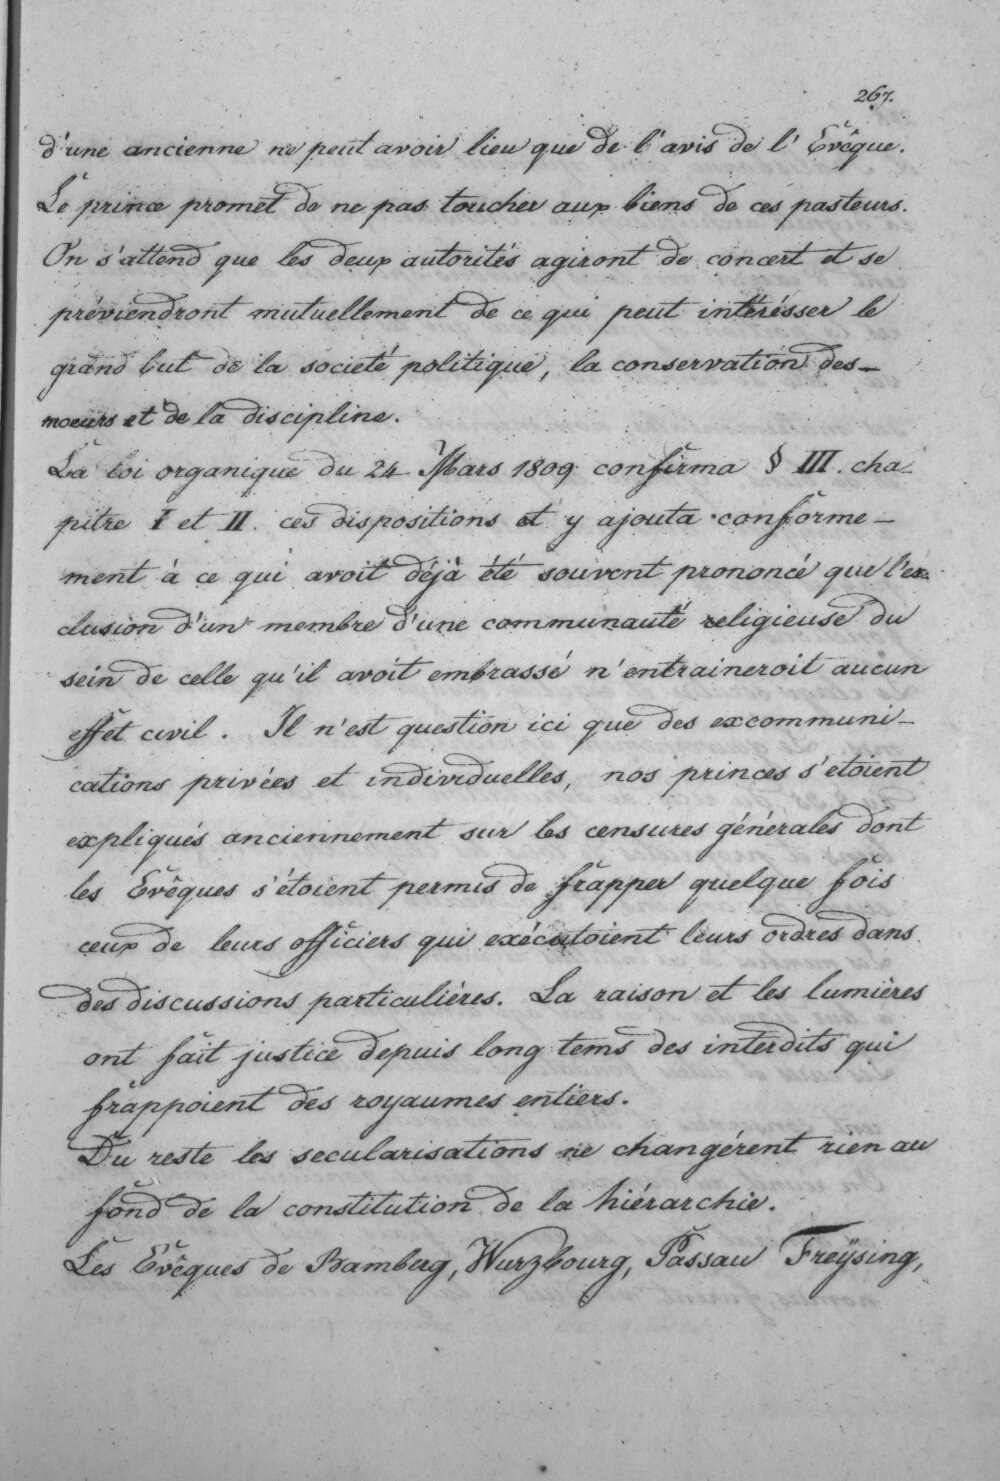 267.
d'une ancienne ne peut avoir lieu que de l'avis de l'Evêque.
Le prince promet de ne pas toucher aux biens de ces pasteurs.
On s'attend que les deux autorités agiront de concert et se
préviendront mutuellement de ce qui peut intérésser le
grand but de la societé politique, la conservation des—
moeurs et de la discipline.
La loi organique du 24. Mars 1809 confirma § III. cha-
pitre I et II. ces dispositions et y ajouta conforme—
ment à ce qui avoit déjà été souvent prononcé que l'ex-
clusion d'un membre d'une communauté religieuse du
sein de celle qu'il avoit embrassé n'entraineroit aucun
effet civil. Il n'est question ici que des excommuni—
cations privées et individuelles, nos princes s'etoient
expliqués anciennement sur les censures générales dont
les Evêques s'étoient permis de frapper quelque fois
ceux de leurs officiers qui exécutoient leurs ordres dans
des discussions particuliéres. La raison et les lumières
ont fait justice depuis long tems des interdits qui
frappoient des royaumes entiers.
Du reste les secularisations ne changérent rien au
fond de la constitution de la hiérarchie.
Les Evêques de Bamberg, Wurzbourg, Passau Freÿsing,